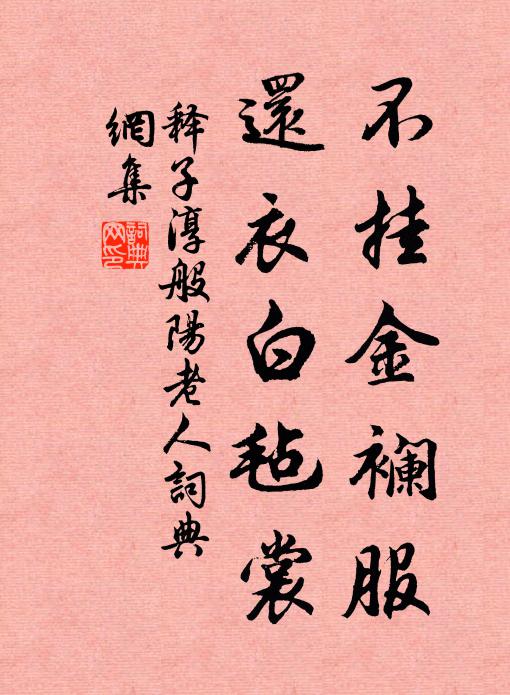 不挂金襕服
還衣白毡裳
释子淳般陽老人詞典
網集
詞典
网印